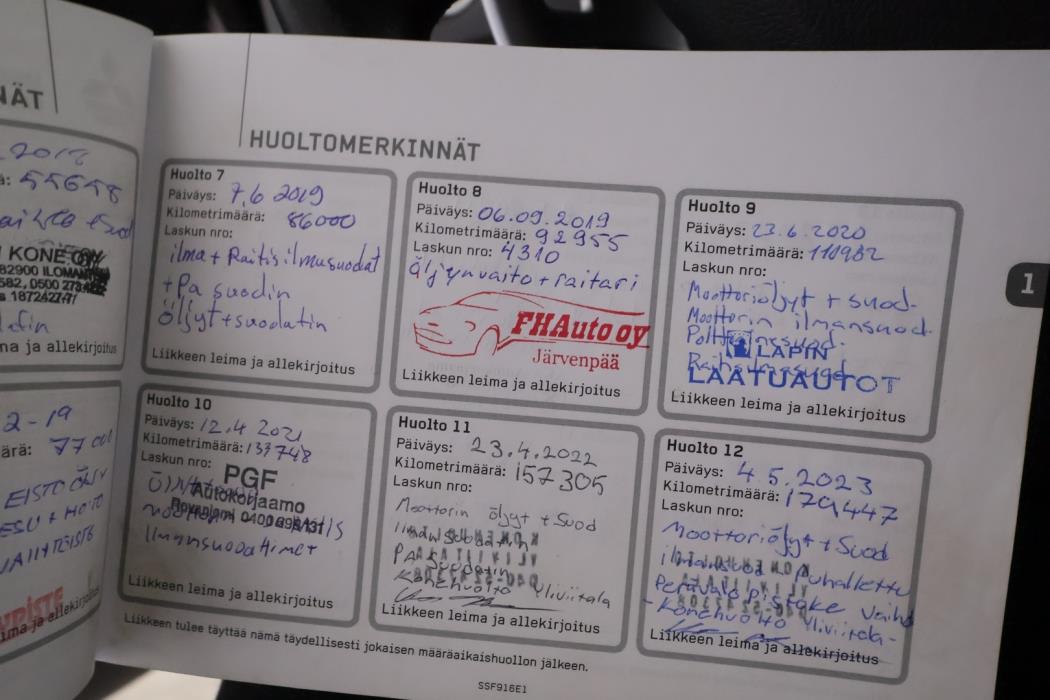 NÄT
2018
ä: 55658
I KONE OY
82900 ILOMAN
582, 0500
s 1872427-7/
ma ja allekirjoitus
2-19
ärä: 77 000
EISTO ÖLJY
ima ja allekirjoitus
HUOLTOMERKINNÄT
Huolto 7
Päiväys: 7.6 2019
Kilometrimäärä: 86000
Laskun nro:
ilma + Raitisilmasuodat
+ Pa suodin
öljyt + suodatin
Liikkeen leima ja allekirjoitus
Huolto 8
Päiväys: 06.09.2019
Kilometrimäärä: 92955
Laskun nro: 4310
Öljynvaito + raitari
FHAuto oy
Järvenpää
Liikkeen leima ja allekirjoitus
Huolto 9
Päiväys: 23.6.2020
Kilometrimäärä: 110982
Laskun nro:
Moottoriöljyt + suod.
Moottorin ilmansuod.
LAPIN
LAATUAUTOT
Liikkeen leima ja allekirjoitus
1
Huolto 10
Päiväys: 12.4 2021
Kilometrimäärä: 133748
Laskun nro:
PGF
Autokorjaamo
Rovaniemi
Ilmansuodattimet
Liikkeen leima ja allekirjoitus
Huolto 11
Päiväys: 23.4.2022
Kilometrimäärä: 157305
Laskun nro:
Moottorin öljyt + Suod
Ilmansuodatin
PA Suodatin
Konehuolto Yliviitala
Liikkeen leima ja allekirjoitus
Huolto 12
Päiväys: 4.5.2023
Kilometrimäärä: 179447
Laskun nro:
Moottoriöljyt + Suod
puhallettu
Perävalo pistoke vaihd
- Konehuolto Yliviitala -
Liikkeen leima ja allekirjoitus
Liikkeen tulee täyttää nämä täydellisesti jokaisen määräaikaishuollon jälkeen.
SSF916E1